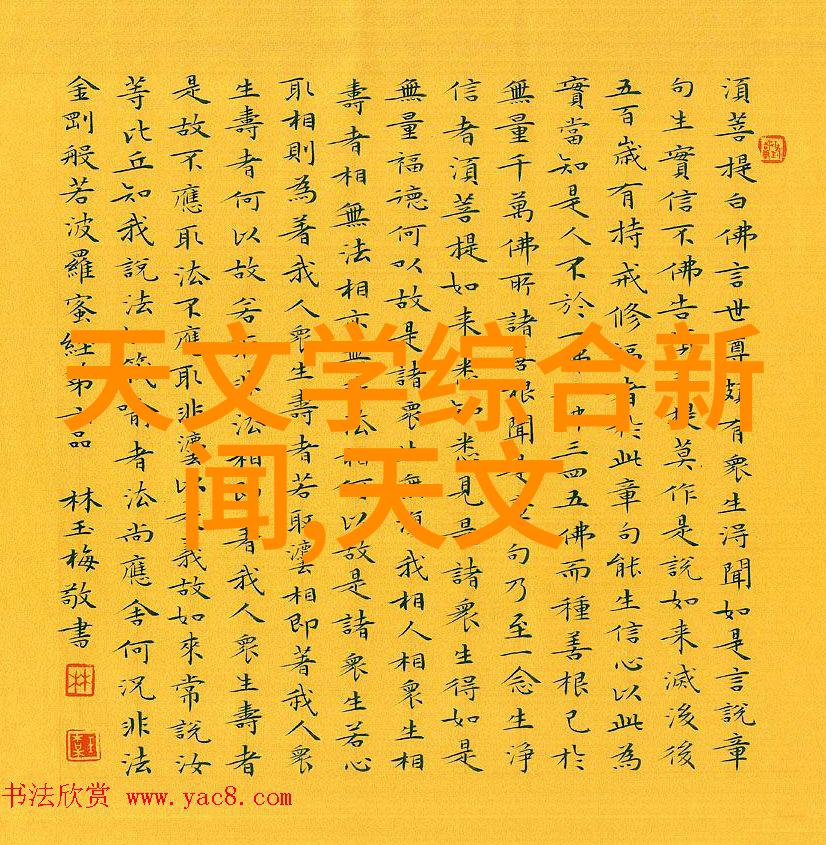 須菩提白佛言世尊頗有衆生得聞如是言說章
句生實信不佛告提莫作是說如来滅後後
五百嵗有持戒修福者於此章句能生信心以此為
實當知是人不於一三四五佛而種善根已於
無量千萬佛所諸善根聞是章句乃至一念生淨
信者須菩提如来悉知悉見是諸衆生得如是
無量福德何以故是諸衆生無復我相人相衆生相
壽者相無法相亦無法相何以故是諸衆生若心
取相則為著我人衆生壽者若取灋相即著我人衆
生壽者何以故若非法相即著我人衆生壽者
是故不應取法不應取非灋以是義故如來常說汝
等比丘知我說法筏喻者法尚應舍何況非法
金剛般若波羅蜜經第六品 林玉梅敬書
天文学综合新
闻,天文
书法欣赏 www.yac8.com